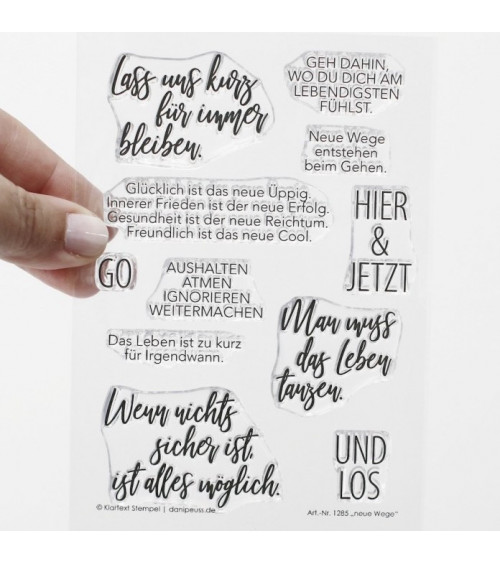 Lass uns kurz
für immer
bleiben.
GEH DAHIN,
WO DU DICH AM
LEBENDIGSTEN
FÜHLST.
Neue Wege
entstehen
beim Gehen.
Glücklich ist das neue Üppig.
Innerer Frieden ist der neue Erfolg.
Gesundheit ist der neue Reichtum.
Freundlich ist das neue Cool.
HIER
&
JETZT
GO
AUSHALTEN
ATMEN
IGNORIEREN
WEITERMACHEN
Man muss
das Leben
tanzen.
Das Leben ist zu kurz
für Irgendwann.
Wenn nichts
sicher ist,
ist alles möglich.
UND
LOS
© Klartext Stempel | danipeuss.de
Art.-Nr. 1285 „neue Wege“